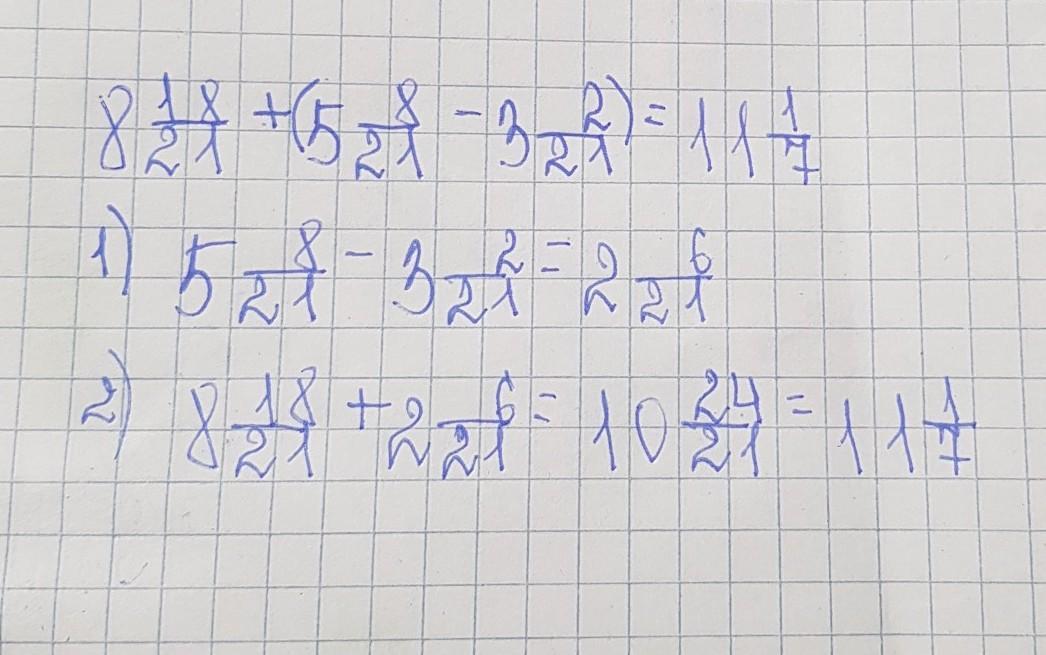 8 18/21 + (5 8/21 - 3 2/21) = 11 1/7
1) 5 8/21 - 3 2/21 = 2 6/21
2) 8 18/21 + 2 6/21 = 10 24/21 = 11 1/7